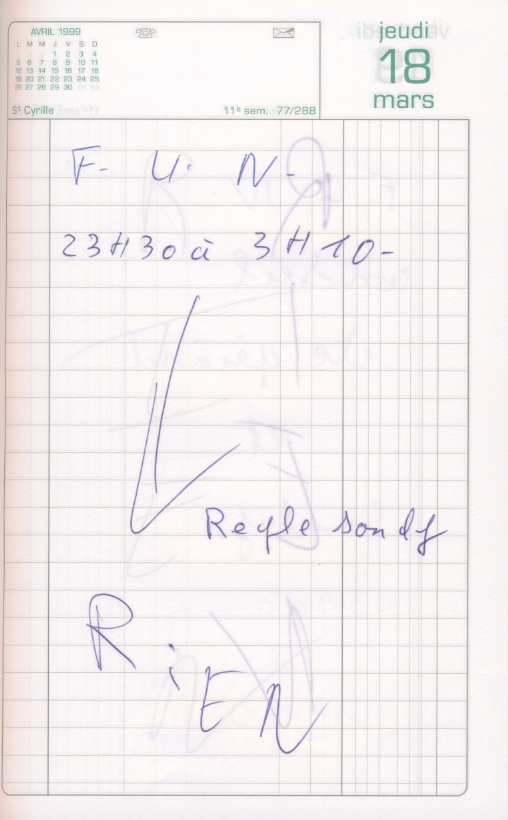 AVRIL 1999
L M M J V S D
1 2 3 4
5 6 7 8 9 10 11
12 13 14 15 16 17 18
19 20 21 22 23 24 25
26 27 28 29 30
St Cyrille
11e sem. 77/288
jeudi
18
mars
F- U. N-
23H30 à 3H10-
Regle
RiEN